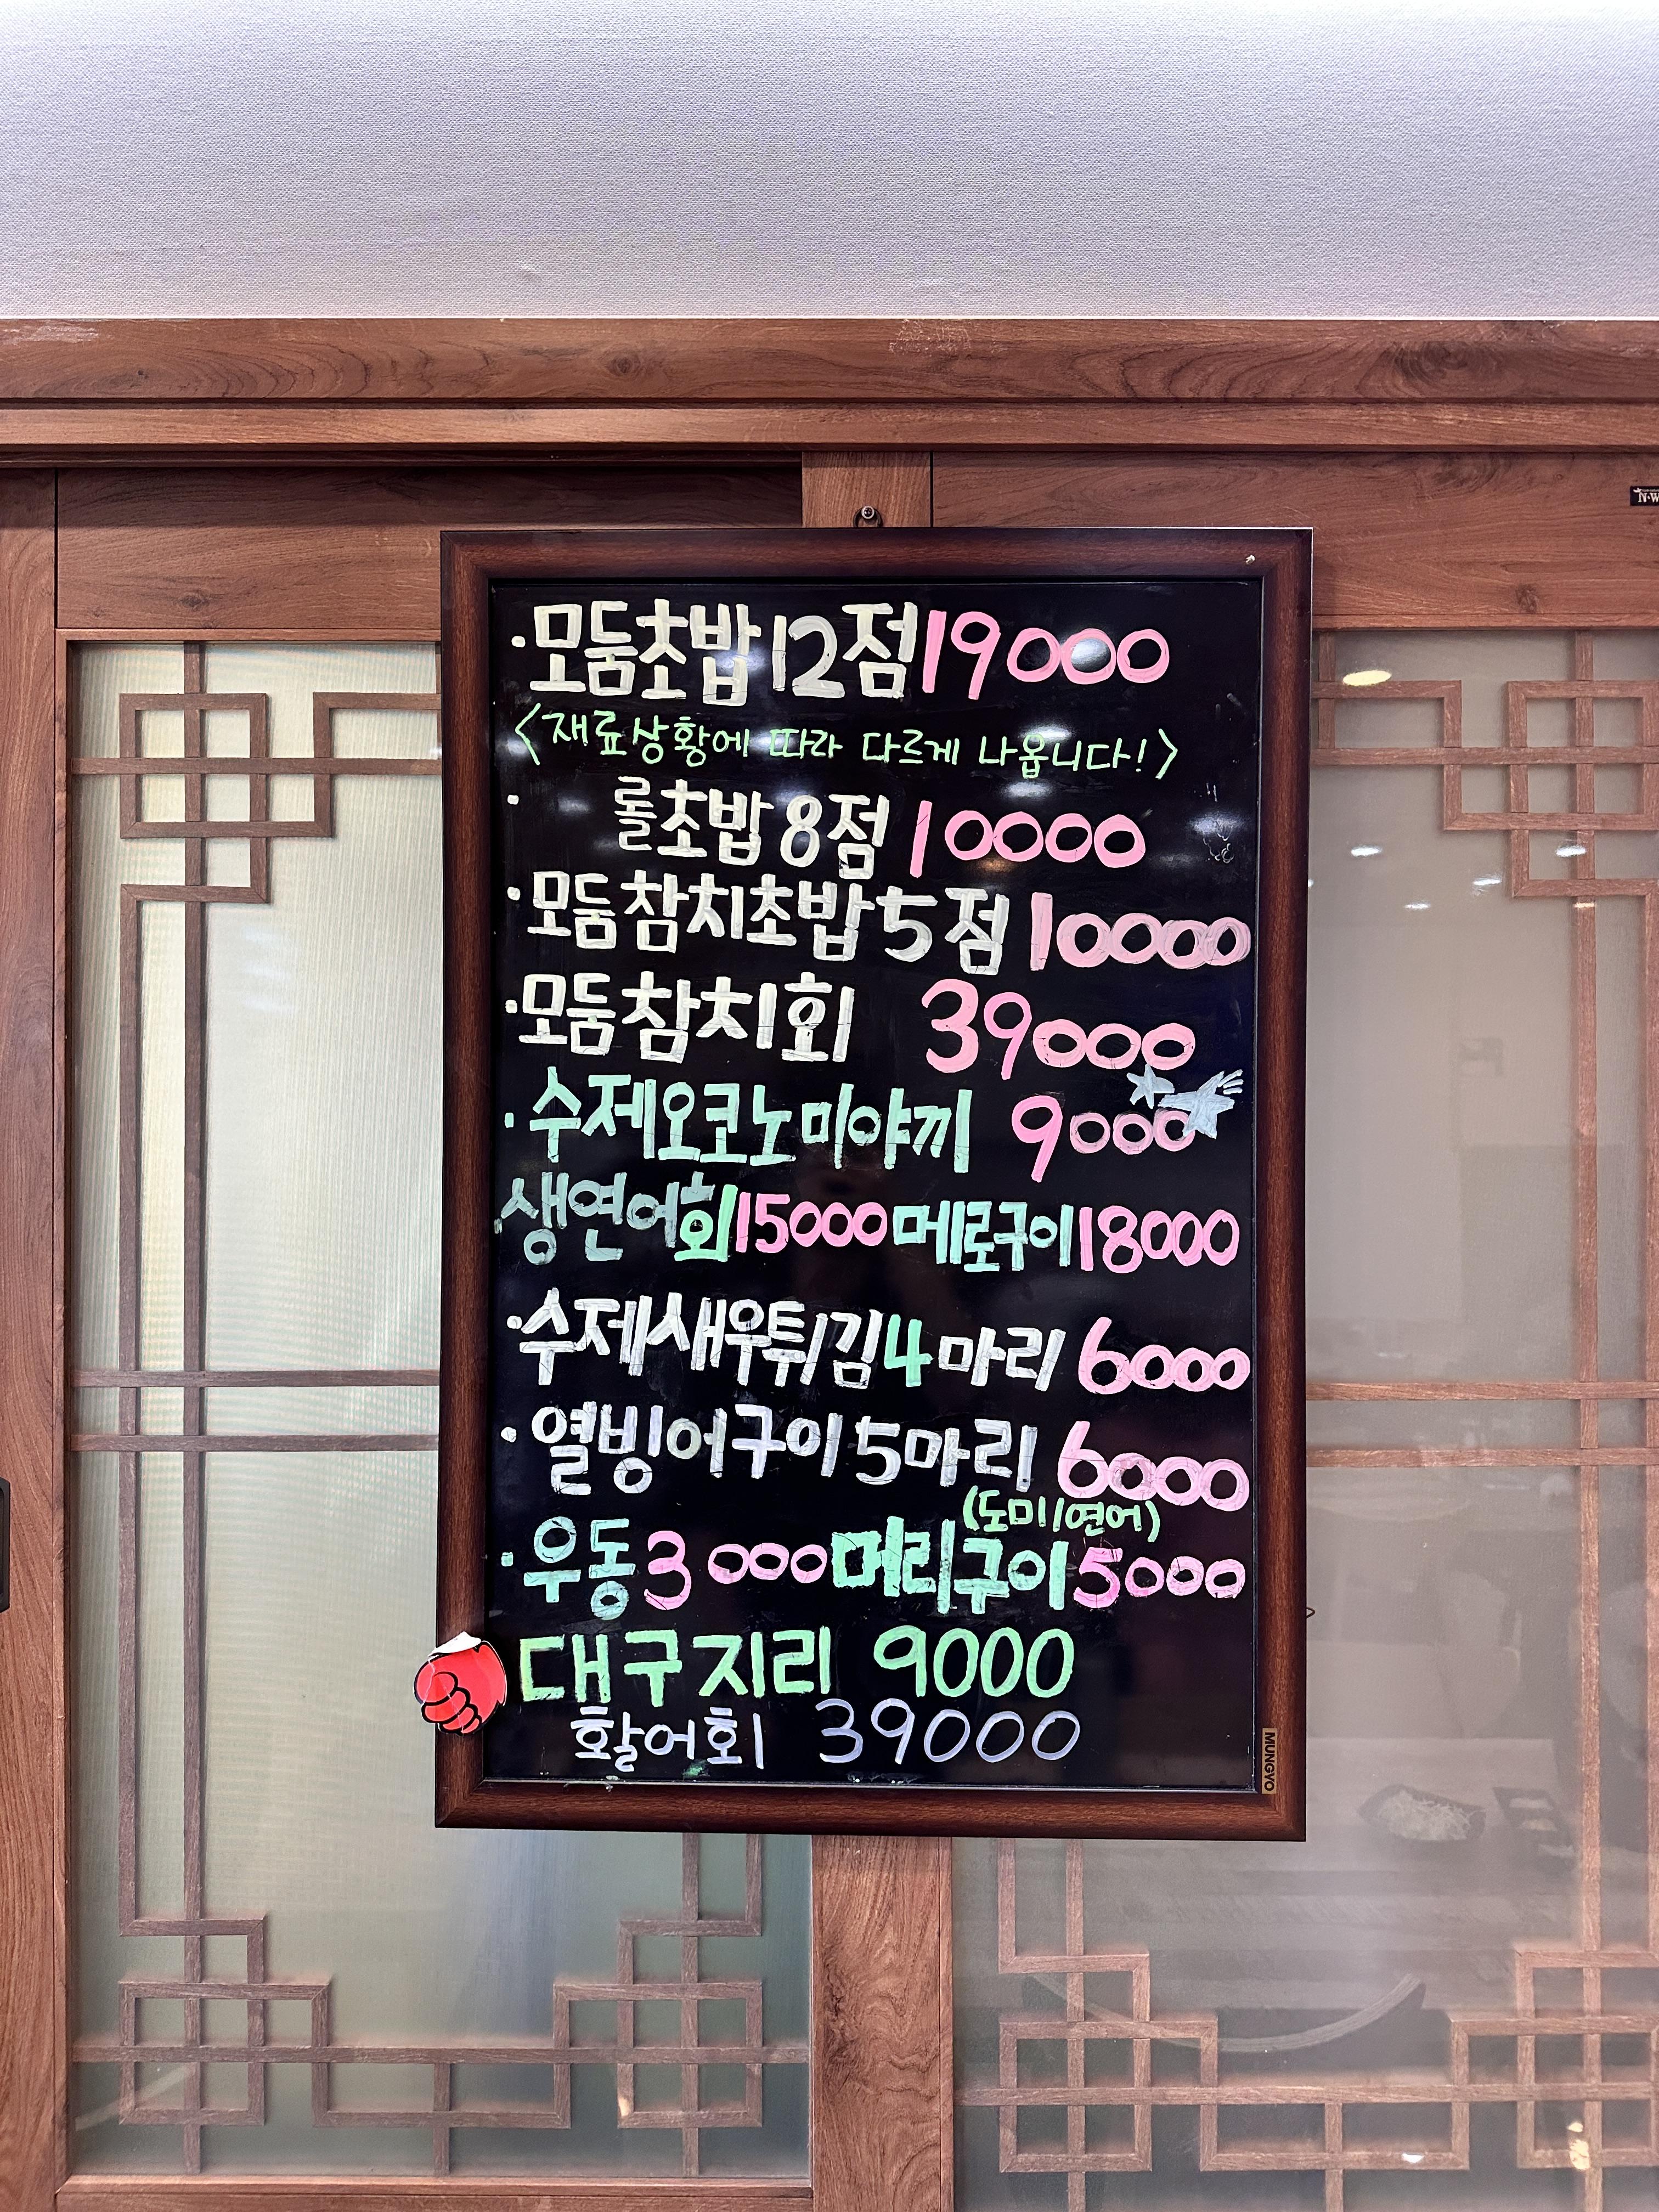 ·모둠초밥12점19000
<재료상황에 따라 다르게 나옵니다!>
· 롤초밥8점 10000
·모둠참치초밥5점 10000
·모둠참치회 39000
·수제오코노미야끼 9000
·생연어회15000메로구이18000
·수제새우튀김4마리 6000
·열빙어구이5마리 6000
(도미/연어)
·우동3000머리구이5000
대구지리 9000
활어회 39000
MUNGYO